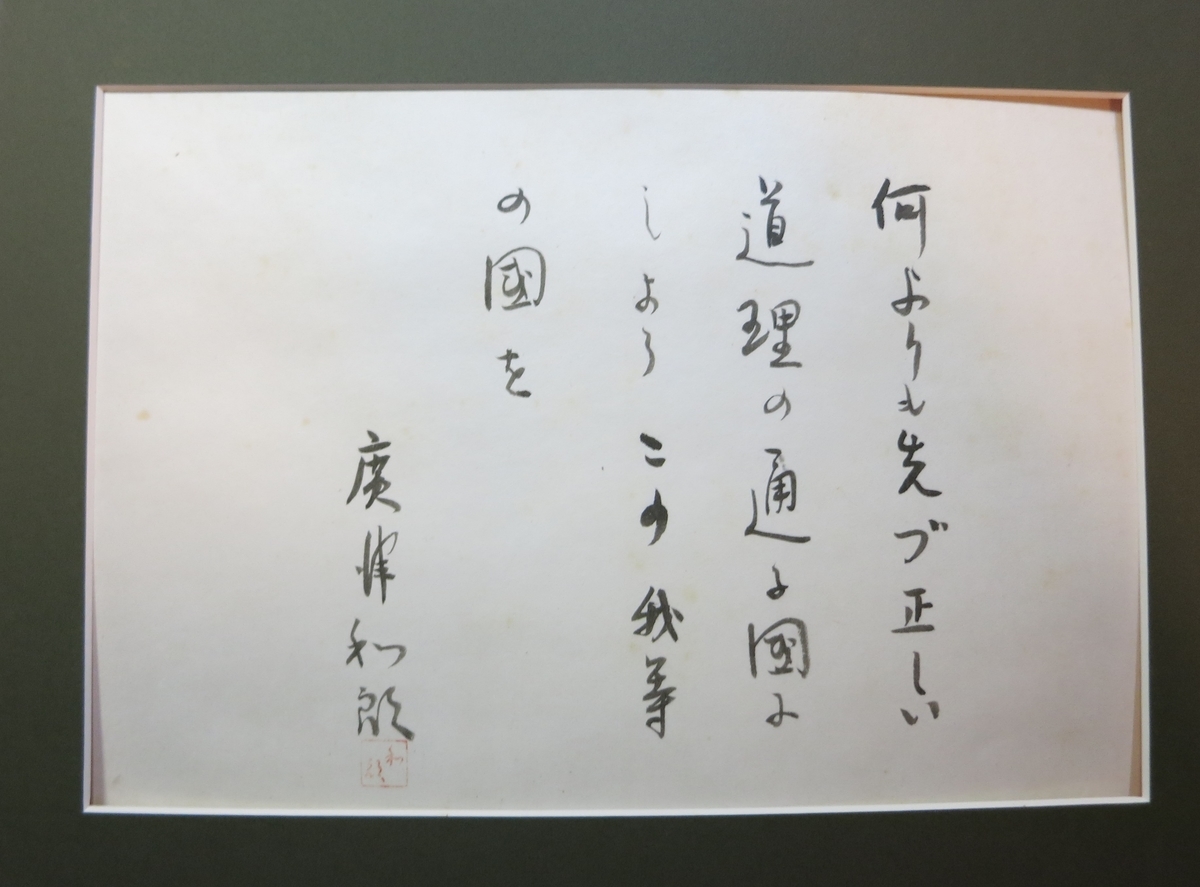 何よりも先づ正しい
道理の通る國に
しよう この我等
の國を
廣津和郎
和郎